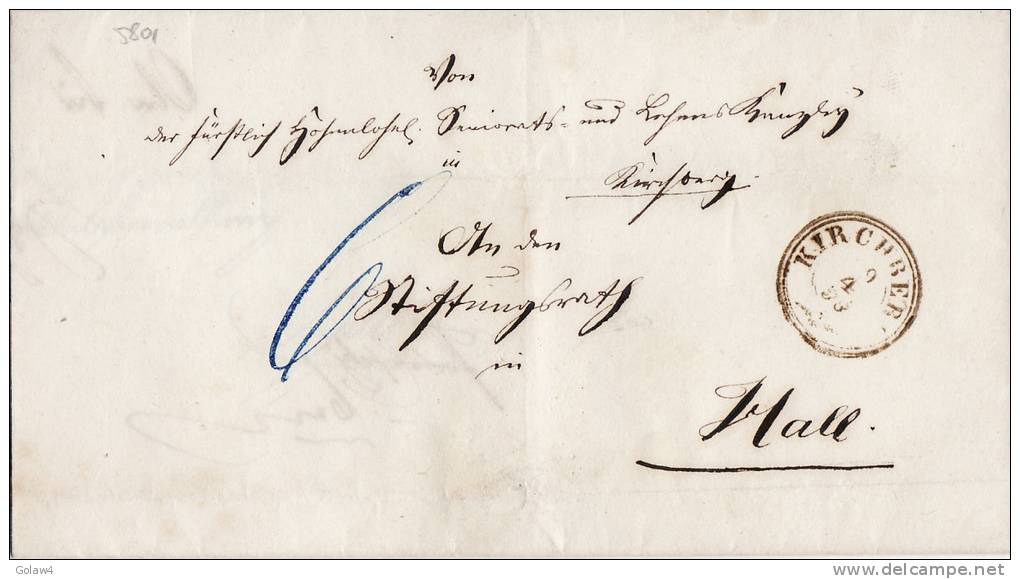 5801
Von
der fürstlich Hohenlohe. Seniorats- und Lehens Kanzley
in
Kirchberg.
An den
6
Stiftungsrath
in
Hall.
KIRCHBER
9
4
53
Golaw4
delcampe.net